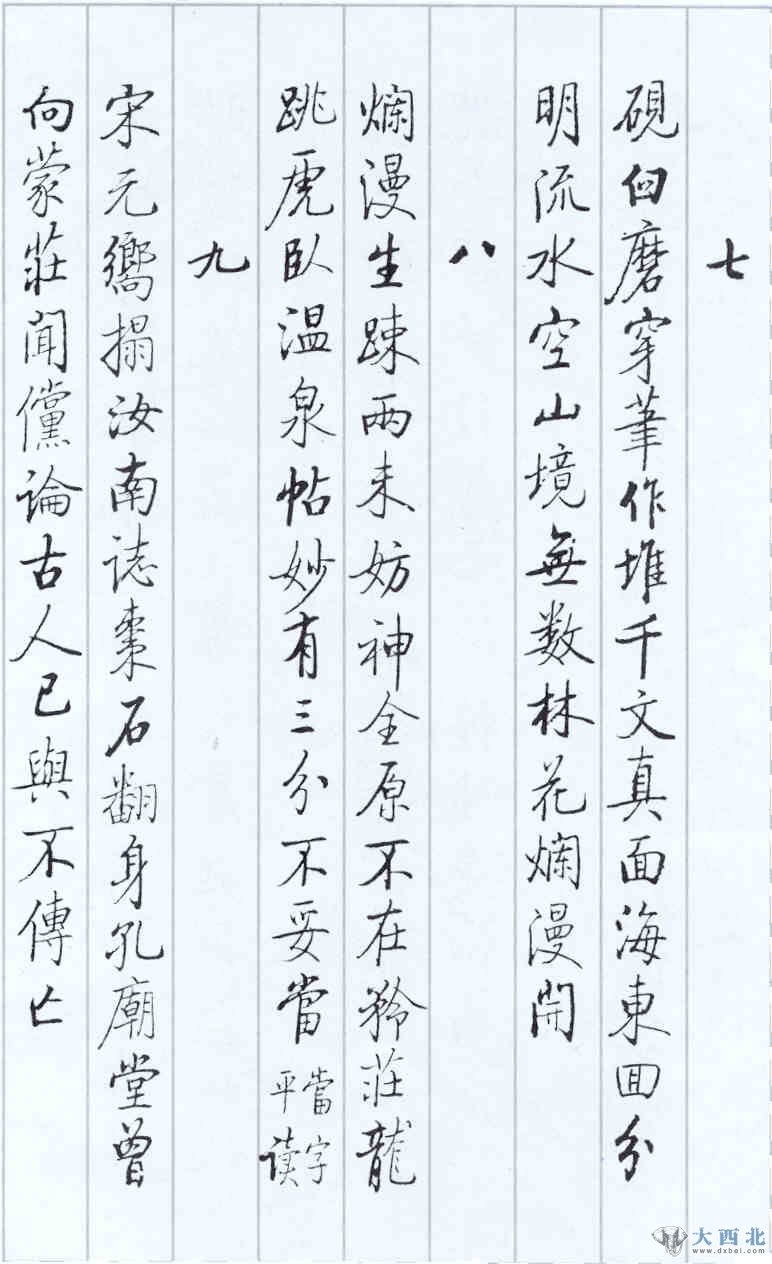 七
硯臼磨穿筆作堆千文真面海東囬分
明流水空山境無数林花爛漫開
八
爛漫生踈兩未妨神全原不在矜莊龍
跳虎臥温泉帖妙有三分不妥當
當字
平读
九
宋元嚮搨汝南誌棗石翻身孔廟堂曾
向蒙莊聞儻論古人已與不傳亡
大西北
www.dxbei.com